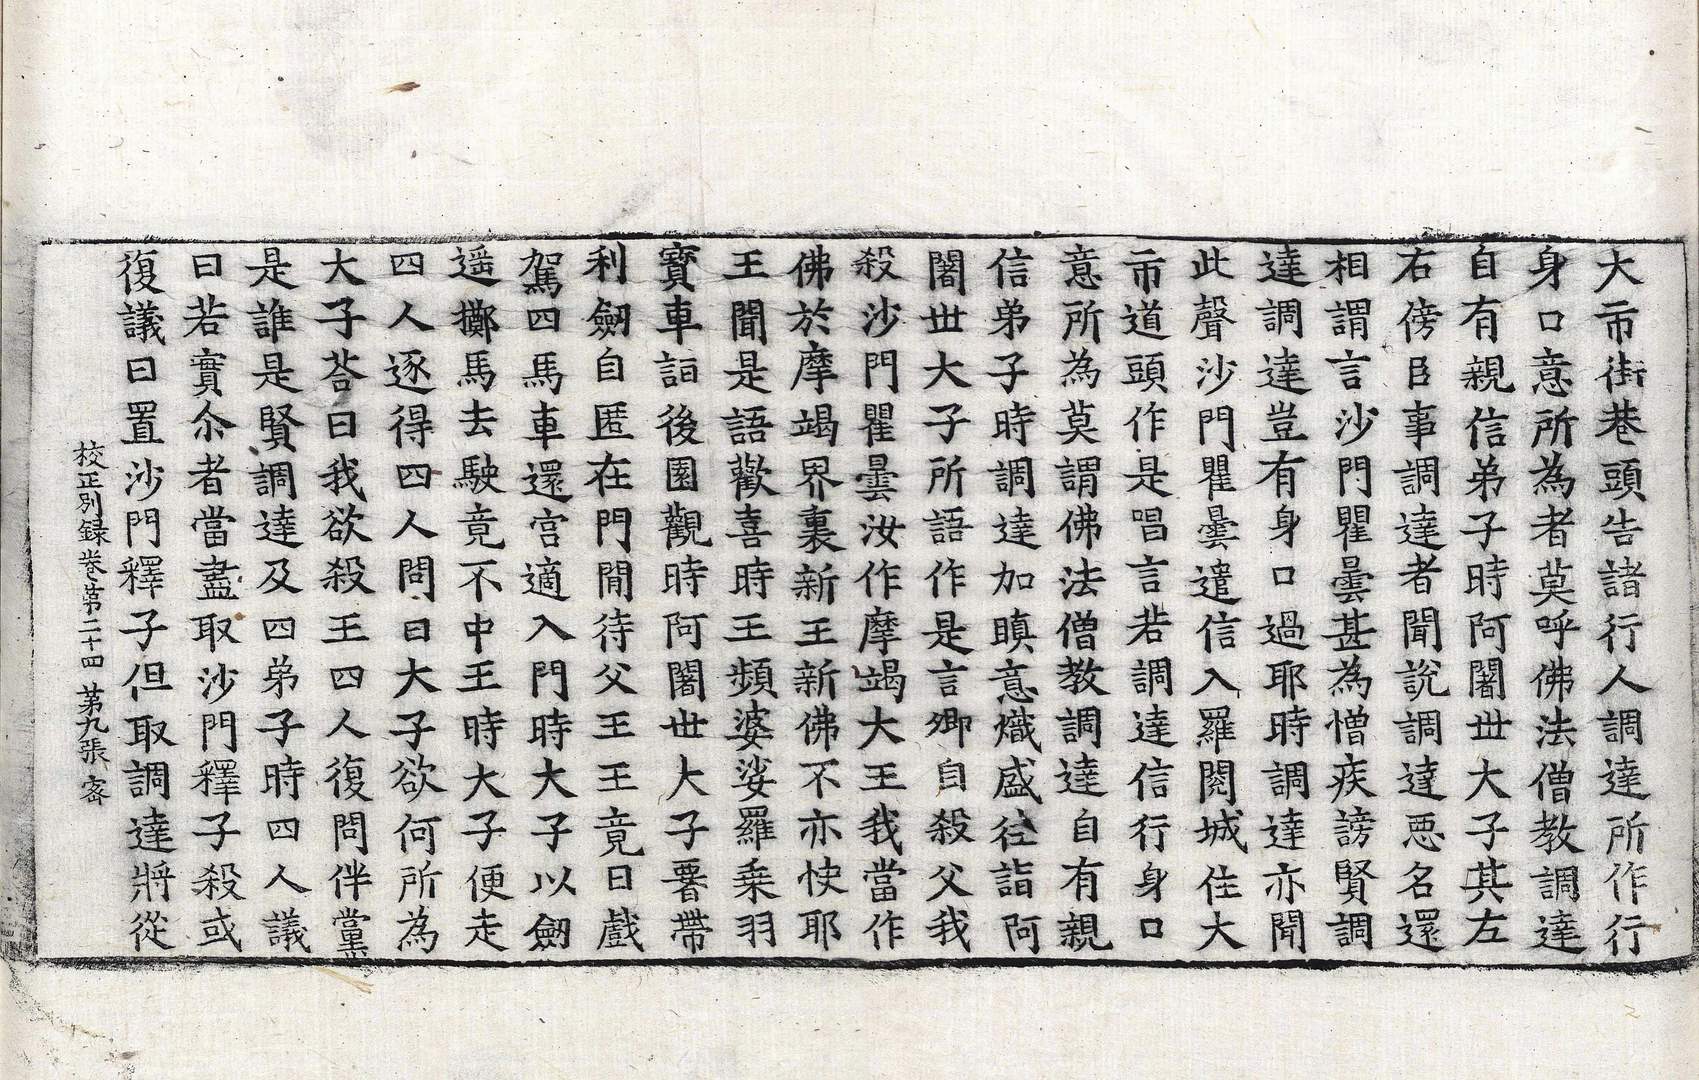 大市街巷頭告諸行人調達所作行
身口意所為者莫呼佛法僧教調達
自有親信弟子時阿闍世大子其左
右傍臣事調達者聞說調達惡名還
相謂言沙門瞿曇甚為憎疾謗賢調
達調達豈有身口過耶時調達亦聞
此聲沙門瞿曇遣信入羅閱城住大
市道頭作是唱言若調達信行身口
意所為莫謂佛法僧教調達自有親
信弟子時調達加瞋意熾盛往詣阿
闍世大子所語作是言卿自殺父我
殺沙門瞿曇汝作摩竭大王我當作
佛於摩竭界裏新王新佛不亦快耶
王聞是語歡喜時王頻婆娑羅乗羽
寶車詣後園觀時阿闍世大子㬱帶
利劒自匿在門閒待父王王竟日戲
駕四馬車還宮適入門時大子以劒
遥擲馬去駛竟不中王時大子便走
四人逐得四人問曰大子欲何所為
大子荅曰我欲殺王四人復問伴黨
是誰是賢調達及四弟子時四人議
曰若實尒者當盡取沙門釋子殺或
復議曰置沙門釋子但取調達將從
校正別録卷第二十四 第九張 宻